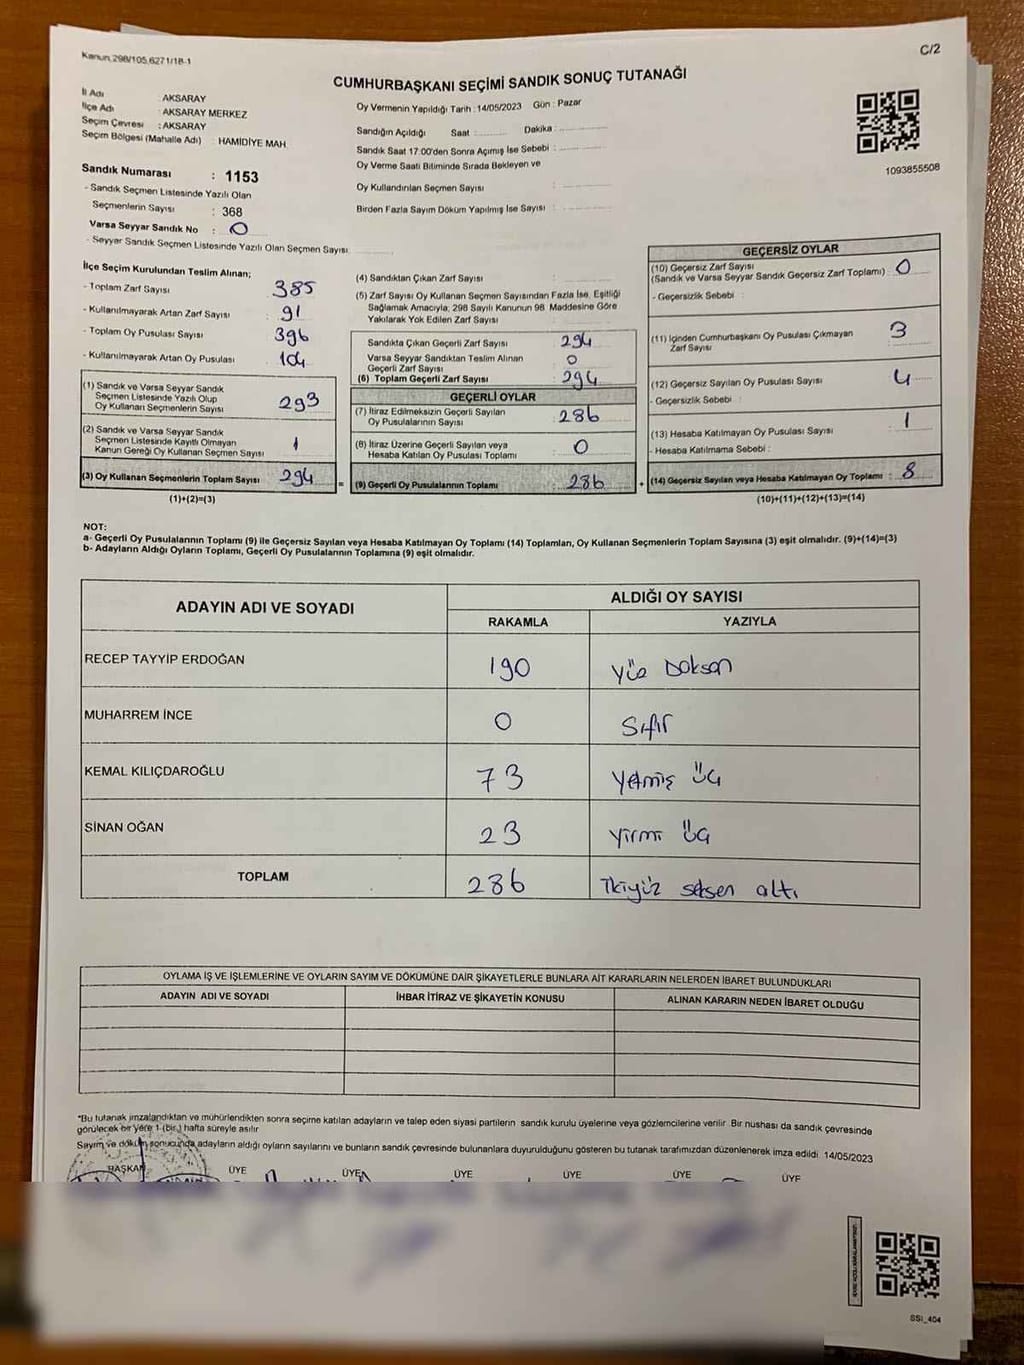 Kanun,298/105,6271/18-1
C/2
CUMHURBAŞKANI SEÇİMİ SANDIK SONUÇ TUTANAĞI
İl Adı : AKSARAY
İlçe Adı : AKSARAY MERKEZ
Seçim Çevresi : AKSARAY
Seçim Bölgesi (Mahalle Adı) : HAMİDİYE MAH.
Sandık Numarası : 1153
- Sandık Seçmen Listesinde Yazılı Olan
Seçmenlerin Sayısı : 368
Varsa Seyyar Sandık No : 0
- Seyyar Sandık Seçmen Listesinde Yazılı Olan Seçmen Sayısı
Oy Vermenin Yapıldığı Tarih : 14/05/2023 Gün : Pazar
Sandığın Açıldığı Saat : Dakika :
Sandık Saat 17:00'den Sonra Açmış İse Sebebi :
Oy Verme Saati Bitiminde Sırada Bekleyen ve
Oy Kullandırılan Seçmen Sayısı :
Birden Fazla Sayım Döküm Yapılmış İse Sayısı :
1093855508
İlçe Seçim Kurulundan Teslim Alınan;
- Toplam Zarf Sayısı : 385
- Kullanılmayarak Artan Zarf Sayısı : 91
- Toplam Oy Pusulası Sayısı : 396
- Kullanılmayarak Artan Oy Pusulası : 104
(1) Sandık ve Varsa Seyyar Sandık
Seçmen Listesinde Yazılı Olup
Oy Kullanan Seçmenlerin Sayısı : 293
(2) Sandık ve Varsa Seyyar Sandık
Seçmen Listesinde Kayıtlı Olmayan
Kanun Gereği Oy Kullanan Seçmen Sayısı : 1
(3) Oy Kullanan Seçmenlerin Toplam Sayısı : 294
(1)+(2)=(3)
(4) Sandıktan Çıkan Zarf Sayısı :
(5) Zarf Sayısı Oy Kullanan Seçmen Sayısından Fazla İse, Eşitliği
Sağlamak Amacıyla, 298 Sayılı Kanunun 98. Maddesine Göre
Yakılarak Yok Edilen Zarf Sayısı :
Sandıkta Çıkan Geçerli Zarf Sayısı : 294
Varsa Seyyar Sandıktan Teslim Alınan
Geçerli Zarf Sayısı : 0
(6) Toplam Geçerli Zarf Sayısı : 294
GEÇERLİ OYLAR
(7) İtiraz Edilmeksizin Geçerli Sayılan
Oy Pusulalarının Sayısı : 286
(8) İtiraz Üzerine Geçerli Sayılan veya
Hesaba Katılan Oy Pusulası Toplamı : 0
= (9) Geçerli Oy Pusulalarının Toplamı : 286 +
GEÇERSİZ OYLAR
(10) Geçersiz Zarf Sayısı
(Sandık ve Varsa Seyyar Sandık Geçersiz Zarf Toplamı) : 0
- Geçersizlik Sebebi :
(11) İçinden Cumhurbaşkanı Oy Pusulası Çıkmayan
Zarf Sayısı : 3
(12) Geçersiz Sayılan Oy Pusulası Sayısı : 4
- Geçersizlik Sebebi :
(13) Hesaba Katılmayan Oy Pusulası Sayısı : 1
- Hesaba Katılmama Sebebi :
(14) Geçersiz Sayılan veya Hesaba Katılmayan Oy Toplamı : 8
(10)+(11)+(12)+(13)=(14)
NOT:
a- Geçerli Oy Pusulalarının Toplamı (9) ile Geçersiz Sayılan veya Hesaba Katılmayan Oy Toplamı (14) Toplamları, Oy Kullanan Seçmenlerin Toplam Sayısına (3) eşit olmalıdır. (9)+(14)=(3)
b- Adayların Aldığı Oyların Toplamı, Geçerli Oy Pusulalarının Toplamına (9) eşit olmalıdır.
ADAYIN ADI VE SOYADI
ALDIĞI OY SAYISI
RAKAMLA YAZIYLA
RECEP TAYYİP ERDOĞAN 190 Yüz Doksan
MUHARREM İNCE 0 Sıfır
KEMAL KILIÇDAROĞLU 73 Yetmiş üç
SİNAN OĞAN 23 Yirmi üç
TOPLAM 286 İkiyüz seksen altı
OYLAMA İŞ VE İŞLEMLERİNE VE OYLARIN SAYIM VE DÖKÜMÜNE DAİR ŞİKAYETLERLE BUNLARA AİT KARARLARIN NELERDEN İBARET BULUNDUKLARI
ADAYIN ADI VE SOYADI İHBAR İTİRAZ VE ŞİKAYETİN KONUSU ALINAN KARARIN NEDEN İBARET OLDUĞU
*Bu tutanak imzalandıktan ve mühürlendikten sonra seçime katılan adayların ve talep eden siyasi partilerin sandık kurulu üyelerine veya gözlemcilerine verilir. Bir nushası da sandık çevresinde
görülecek bir yere 1 (bir) hafta süreyle asılır.
Sayım ve döküm sonucunda adayların aldığı oyların sayılarını ve bunların sandık çevresinde bulunanlara duyurulduğunu gösteren bu tutanak tarafımızdan düzenlenerek imza edildi. 14/05/2023
BAŞKAN ÜYE ÜYE ÜYE ÜYE ÜYE ÜYE
SSİ_404